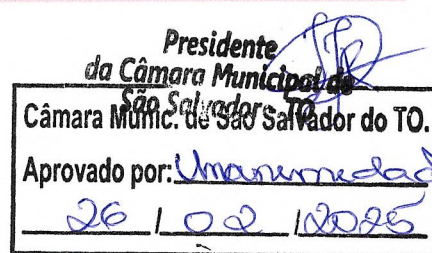 Presidente
da Câmara Municipal de
São Salvador - TO
Câmara Munic. de São Salvador do TO.
Aprovado por: Unanimedad
26 / 02 / 2025